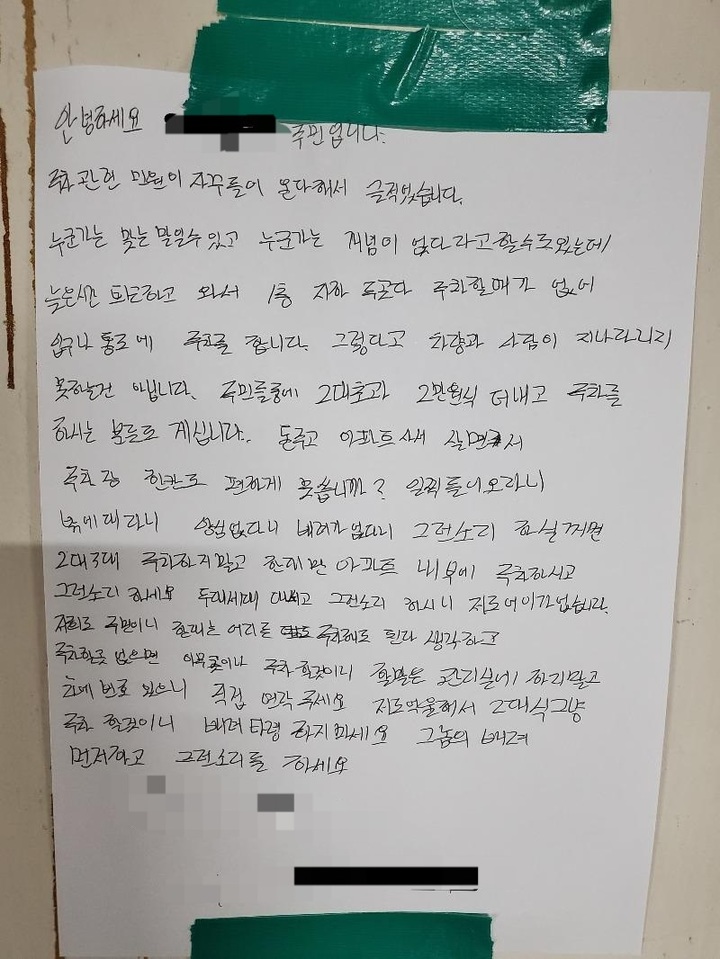 안녕하세요 주민입니다.
주차 관련 민원이 자꾸들어 온다해서 글적었습니다.
누군가는 맞는 말일수 있고 누군가는 개념이 없다 라고 할수도있는데
늦은시간 퇴근하고 와서 1층 지하 두곳다 주차할때가 없어
입구나 통로에 주차를 합니다. 그렇다고 차량과 사람이 지나다니지
못하는건 아닙니다. 주민들중에 2대초과 2만원식 더내고 주차를
하시는 분들도 계십니다. 돈주고 아파트 사서 살면서
주차장 한칸도 편하게 못씁니까? 일찍들어오라니
밖에대라니 양심없다니 배려가없다니 그런소리 하실꺼면
2대3대 주차하지말고 한대만 아파트 내부에 주차하시고
그런소리 하세요 두대세대 대시고 그런소리 하시니 저도어이가없습니다.
저희도 주민이니 한대는 어디를 주차해도 된다 생각하고
주차할곳 없으면 아무곳이나 주차 할것이니 할말은 관리실에 하지말고
차에 번호 있으니 직접 연락 주세요 저도억울해서 2대식그냥
주차 할것이니 배려타령 하지마세요 그놈의 배려
먼저하고 그런소리를 하세요